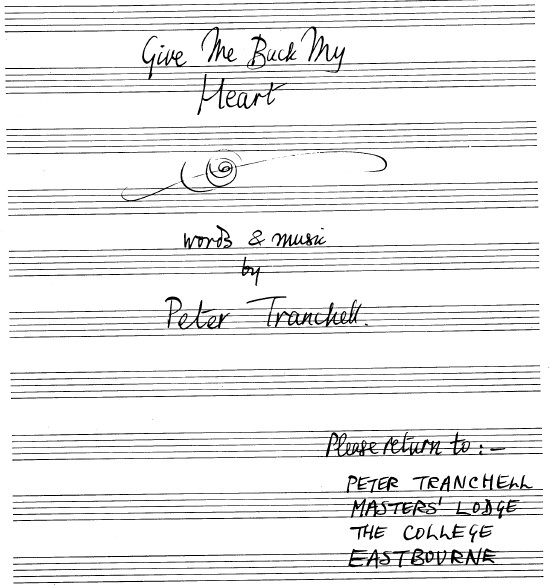 Give Me Back My
Heart
words & music
by
Peter Tranchell.
Please return to :-
PETER TRANCHELL
MASTERS' LODGE
THE COLLEGE
EASTBOURNE